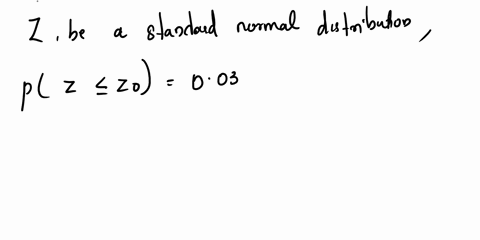 Z, be a standard normal distribution,
p( z ≤ z0) = 0.03